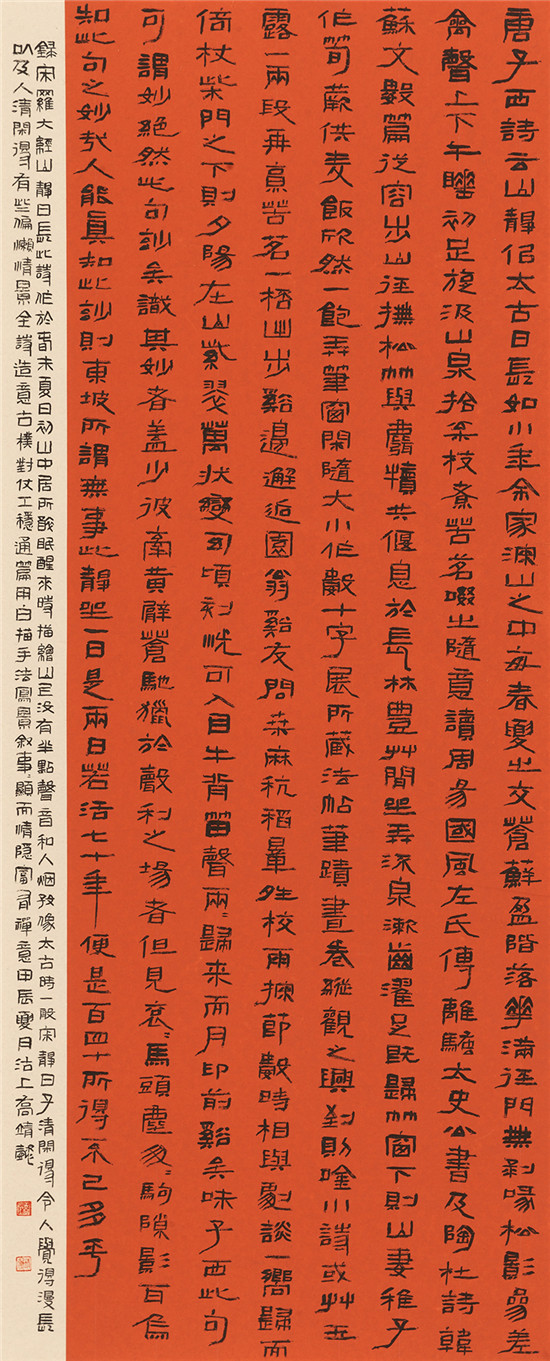 唐子西詩云山靜侣太古日長如小年余家深山之中每春夏之交蒼蘚盈階落華滿徑門無剥啄松影參差
禽聲上下午睡初足旋汲山泉拾松枝煮苦茗啜之隨意讀周易國風左氏傳離騷太史公書及陶杜詩韓
蘇文數篇從容步山徑撫松竹與麛犢共偃息於長林豐艸間坐弄流泉漱齒濯足既歸竹窗下則山妻稚子
作筍蕨供麥飯欣然一飽弄筆窗閒隨大小作數十字展所藏法帖筆蹟畫卷縱觀之興到則唫小詩或艸玉
露一兩段再烹苦茗一桮出步谿邊邂逅園翁谿友問桑麻秔稻量晴校雨探節數時相與劇談一嚮歸而
倚杖柴門之下則夕陽在山紫翠萬狀變幻頃刻恍可入目牛背笛聲兩〻歸来而月印前谿矣味子西此句
可謂妙絕然此句妙矣識其妙者蓋少彼牽黃臂蒼馳獵於聲利之場者但見衮〻馬頭塵匆〻駒隙影耳烏
知此句之妙哉人能真知此妙則東坡所謂無事此靜坐一日是兩日若活七十年便是百四十所得不已多乎
錄宋羅大經山靜日長此詩作於春末夏日初山中居所酣眠醒來時描繪山居没有半點聲音和人烟好像太古時一般寂靜日子清閒得令人覺得漫長
以及人清閒得有些偏懶情景全詩造意古樸對仗工穩通篇用白描手法寫景敘事顯而情隱富有禪意甲辰夏月沽上喬靖懿